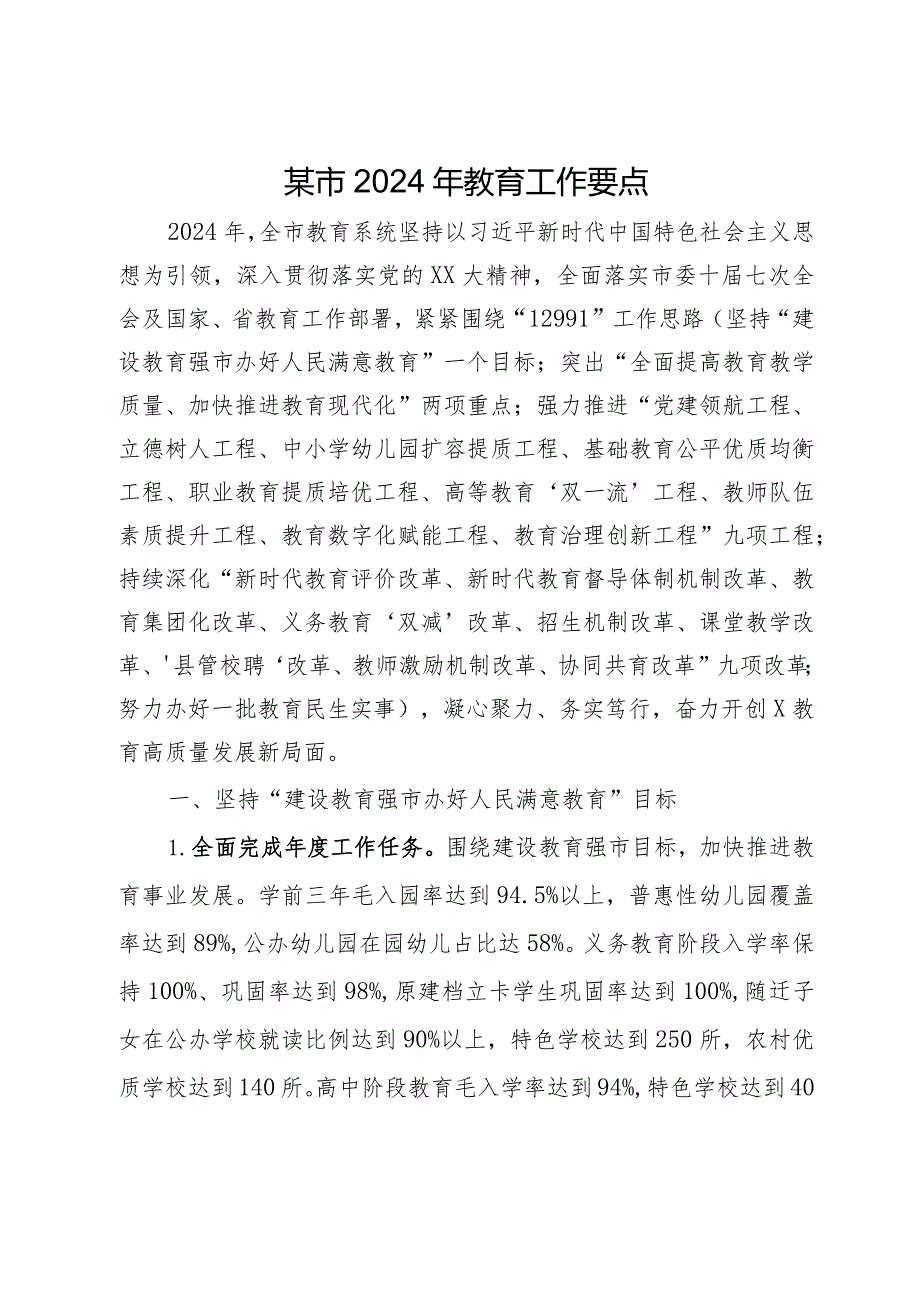 某市2024年教育工作要点
2024年,全市教育系统坚持以习近平新时代中国特色社会主义思
想为引领，深入贯彻落实党的XX大精神，全面落实市委十届七次全
会及国家、省教育工作部署，紧紧围绕“12991”工作思路（坚持“建
设教育强市办好人民满意教育”一个目标；突出“全面提高教育教学
质量、加快推进教育现代化”两项重点；强力推进“党建领航工程、
立德树人工程、中小学幼儿园扩容提质工程、基础教育公平优质均衡
工程、职业教育提质培优工程、高等教育‘双一流’工程、教师队伍
素质提升工程、教育数字化赋能工程、教育治理创新工程”九项工程；
持续深化“新时代教育评价改革、新时代教育督导体制机制改革、教
育集团化改革、义务教育‘双减’改革、招生机制改革、课堂教学改
革、'县管校聘‘改革、教师激励机制改革、协同共育改革”九项改革；
努力办好一批教育民生实事），凝心聚力、务实笃行，奋力开创X教
育高质量发展新局面。
一、坚持“建设教育强市办好人民满意教育”目标
1.全面完成年度工作任务。围绕建设教育强市目标，加快推进教
育事业发展。学前三年毛入园率达到94.5%以上，普惠性幼儿园覆盖
率达到89%,公办幼儿园在园幼儿占比达58%。义务教育阶段入学率保
持100%、巩固率达到98%,原建档立卡学生巩固率达到100%,随迁子
女在公办学校就读比例达到90%以上，特色学校达到250所，农村优
质学校达到140所。高中阶段教育毛入学率达到94%,特色学校达到40